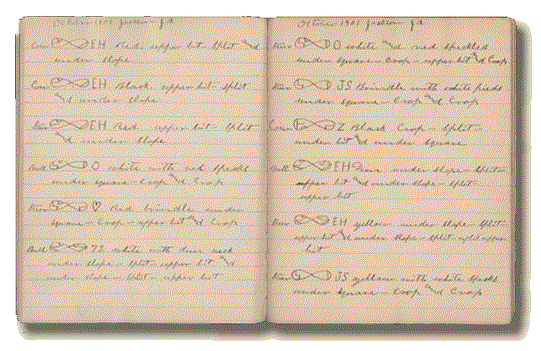 October 1901 Jackson Ga
Cow EH Red, upper bit - split and
under slope
Cow EH Black, upper bit - split
and under slope
EH Red - upper bit - split
and under slope
Bull O white with red specks
under square - crop and crop
♡ Red brindle under
square - crop - upper bit and crop
Bull 72 white with neck
under slope - split - upper bit and
under slope - split - upper bit
October 1901 Jackson Ga
O white and red speckled
under square - crop - upper bit and crop
JS Brindle with white
under square - crop and crop
Cow Z Black Crop - split -
under bit and under square
Bull EH under slope - split -
upper bit and under slope - split -
upper bit
EH yellow under slope - split -
upper bit and under slope - split - upper
bit
JS yellow with white specks
under square - crop and crop